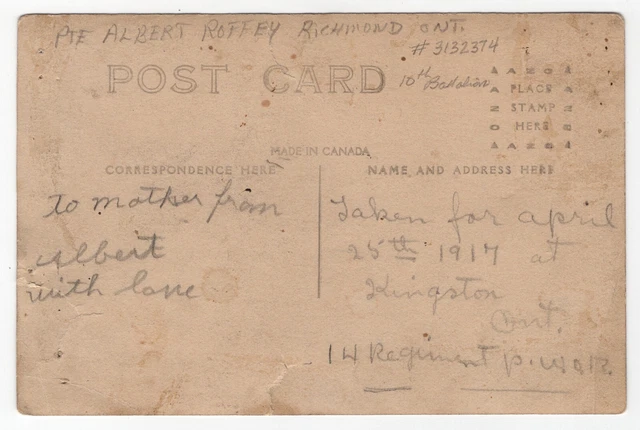 PTE ALBERT ROFFEY RICHMOND ONT.
# 3132374
10th Battalion
POST CARD
AZO
PLACE
STAMP
HERE
AZO
MADE IN CANADA
CORRESPONDENCE HERE
NAME AND ADDRESS HERE
to mother from
Albert
with love
Taken for april
25th 1917 at
Kingston
Ont.
14 Regiment P.W.O.R.